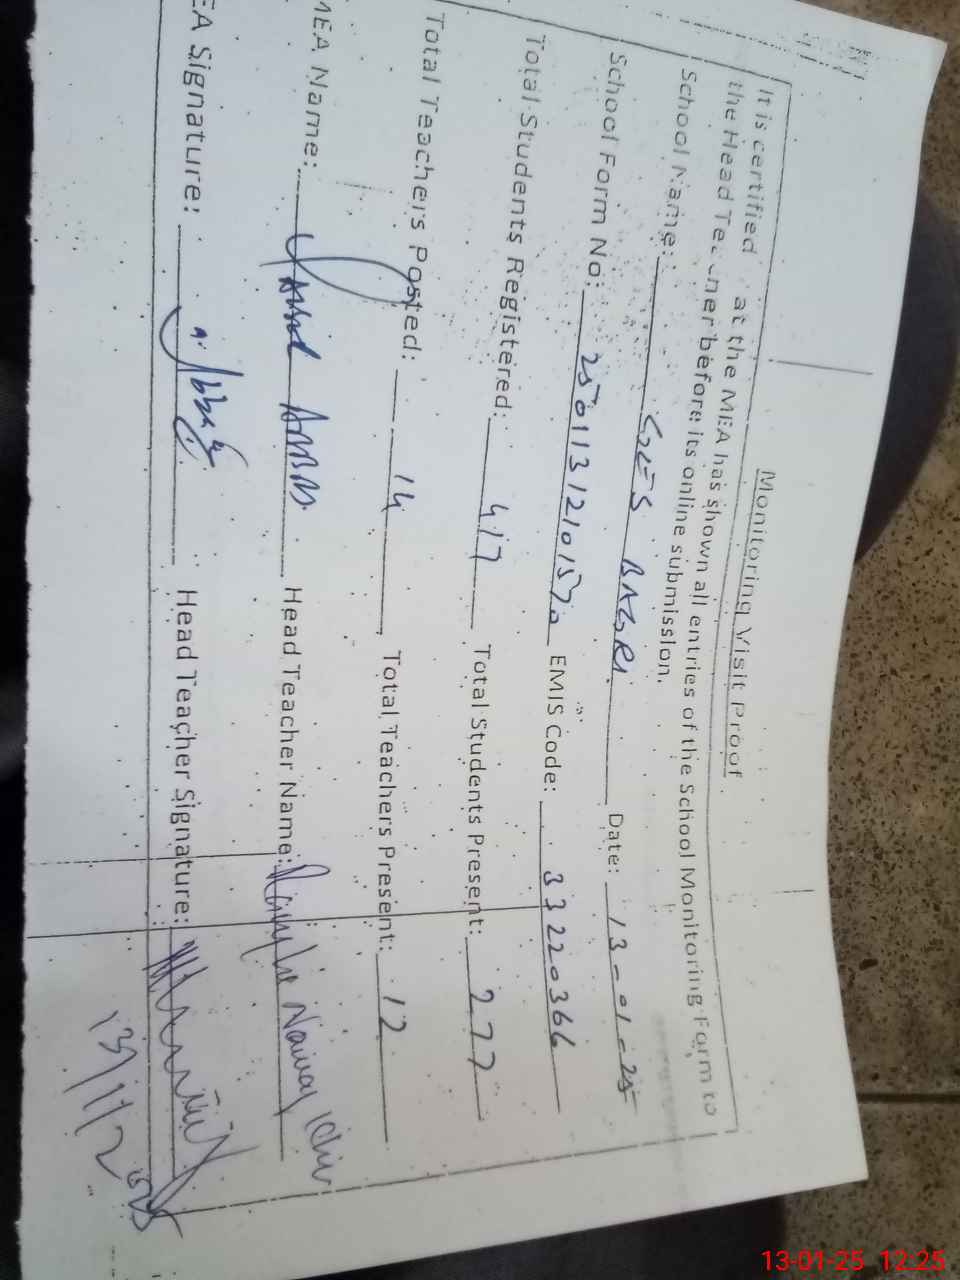 Monitoring Visit Proof
It is certified at the MEA has shown all entries of the School Monitoring Form to
the Head Teacher before its online submission.
School Name: Date: 13-01-25
School Form No: EMIS Code: 33220366
Total Students Registered: 417 Total Students Present: 277
Total Teachers Posted: 14 Total Teachers Present: 12
MEA Name: Abbas Head Teacher Name:
EA Signature: Head Teacher Signature:
13/1/2025
13-01-25 12:25